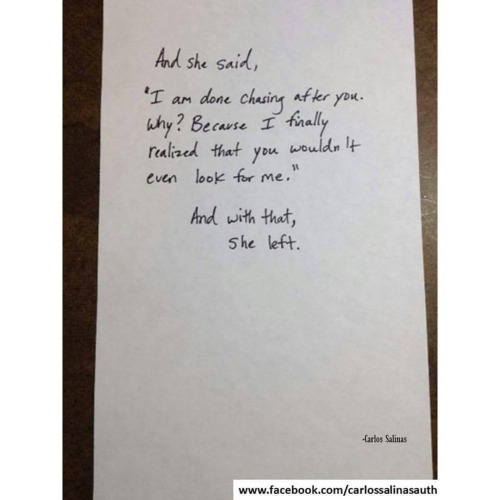 And she said,
"I am done chasing after you.
Why? Because I finally
realized that you wouldn't
even look for me."
And with that,
She left.
-Carlos Salinas
www.facebook.com/carlossalinasauth